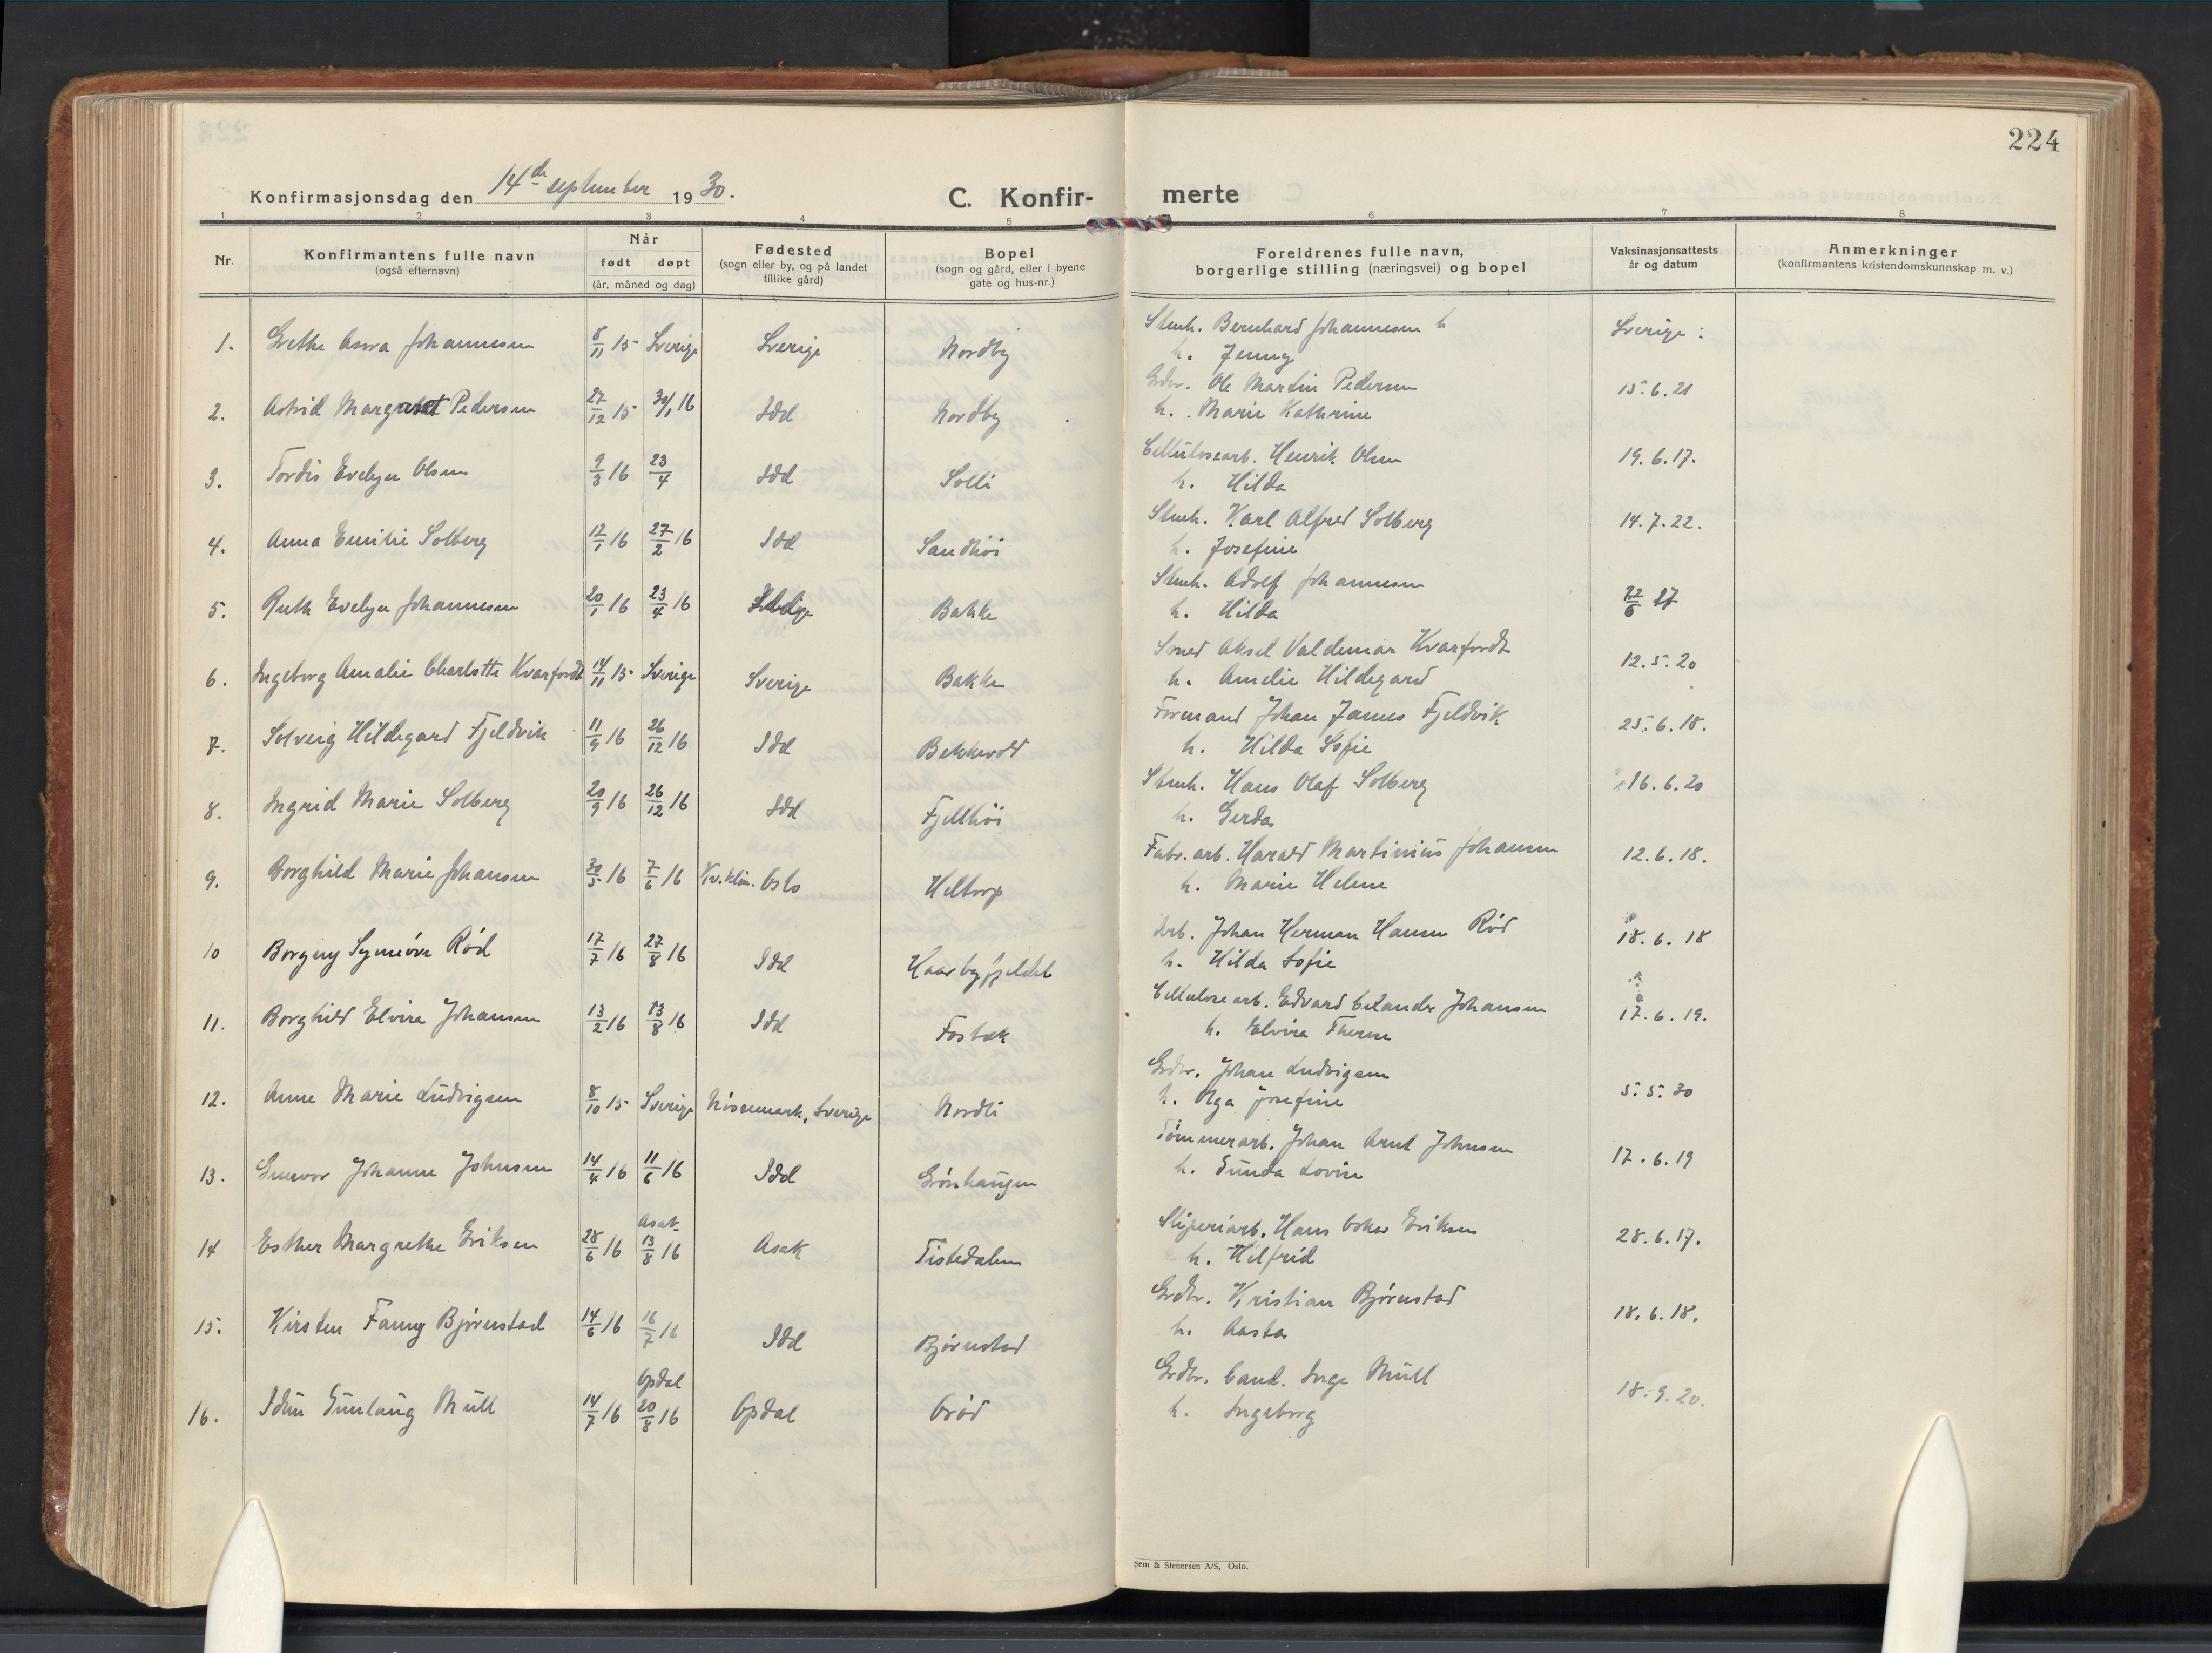 224
Konfirmasjonsdag den 14de september 1930.
C. Konfir-merte
1 2 3 4 5 6 7 8
Nr.
Konfirmantens fulle navn
(også efternavn)
Når
født døpt
(år, måned og dag)
Fødested
(sogn eller by, og på landet
tillike gård)
Bopel
(sogn og gård, eller i byene
gate og hus-nr.)
Foreldrenes fulle navn,
borgerlige stilling (næringsvei) og bopel
Vaksinasjonsattests
år og datum
Anmerkninger
(konfirmantens kristendomskunnskap m. v.)
1. Grethe Johannesen 8/11 15 Sverige Sverige Nordby Stenh. Bernhard Johannesen h Sverige
h. Jenny
2. Astrid Margaret Pedersen 27/12 15 30/1 16 Idd Nordby Grdbr. Ole Martin Pedersen 15.6.21
h. Marie Kathrine
3. Tordis Evelyn Olsen 9/3 16 23/4 Idd Solli Cellulosearb. Henrik Olsen 19.6.17.
h. Hilda
4. Anna Emilie Solberg 12/1 16 27/2 16 Idd Sandhöi Stenh. Karl Alfred Solberg 14.7.22.
h. Josefine
5. Ruth Evelyn Johannesen 20/1 16 23/4 16 Bakke Stenh. Adolf Johannesen 22/6 27
h. Hilda
6. Ingeborg Amalie Charlotte Kvarfordt 14/11 15 Sverige Sverige Bakke Smed Aksel Valdemar Kvarfordt 12.5.20
h. Amelie Hildegard
7. Solveig Hildegard Fjeldvik 11/9 16 26/12 16 Idd Bekkevold Formand Johan James Fjeldvik 25.6.18.
h. Hilda Sofie
8. Ingrid Marie Solberg 20/9 16 26/12 16 Idd Fjellhöi Stenh. Hans Olaf Solberg 16.6.20
h. Gerda
9. Borghild Marie Johansen 30/5 16 7/6 16 Kv.klin. Oslo Heltorp Fabr.arb. Harald Martinius Johansen 12.6.18.
h. Marie Helene
10 Borgny Synnöve Röd 17/7 16 27/8 16 Idd Haarbyfjeldet Arb. Johan Herman Hansen Röd 18.6.18
h. Hilda Sofie
11. Borghild Elvira Johansen 13/2 16 13/8 16 Idd Fosbæk Cellulosearb. Edvard Johansen 17.6.19.
h. Elvira Therese
12. Anne Marie Ludvigsen 8/10 15 Sverige Nössemark, Sverige Nordli Grdbr. Johan Ludvigsen 5.5.30
h. Olga Josefine
13. Gunvor Johanne Johnsen 14/4 16 11/6 16 Idd Grönhaugen Tömmerarb. Johan Arnt Johnsen 17.6.19
h. Gunda Lovise
14 Esther Margrethe Eriksen 28/6 16 Asak 13/8 16 Asak Tistedalen Sliperiarb. Hans Oskar Eriksen 28.6.17.
h. Helfrid
15. Kirsten Fanny Björnstad 14/6 16 16/7 16 Idd Björnstad Grdbr. Kristian Björnstad 18.6.18.
h. Aasta
16. Idun Gunlaug Müll 14/7 16 Opdal 20/8 16 Opdal Öröd Grdbr. Cand. Inge Müll 18.9.20.
h. Ingeborg
Sem & Stenersen A/S, Oslo.